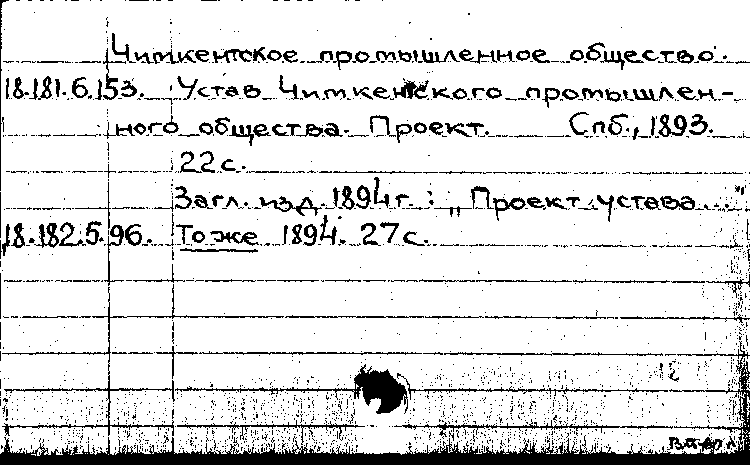 Чимкентское промышленное общество.
18.181.6.153. Устав Чимкентского промышлен-
ного общества. Проект. Спб., 1893.
22 с.
Загл. изд. 1894 г. : „Проект устава..."
18.182.5.96. То же 1894. 27 с.
12